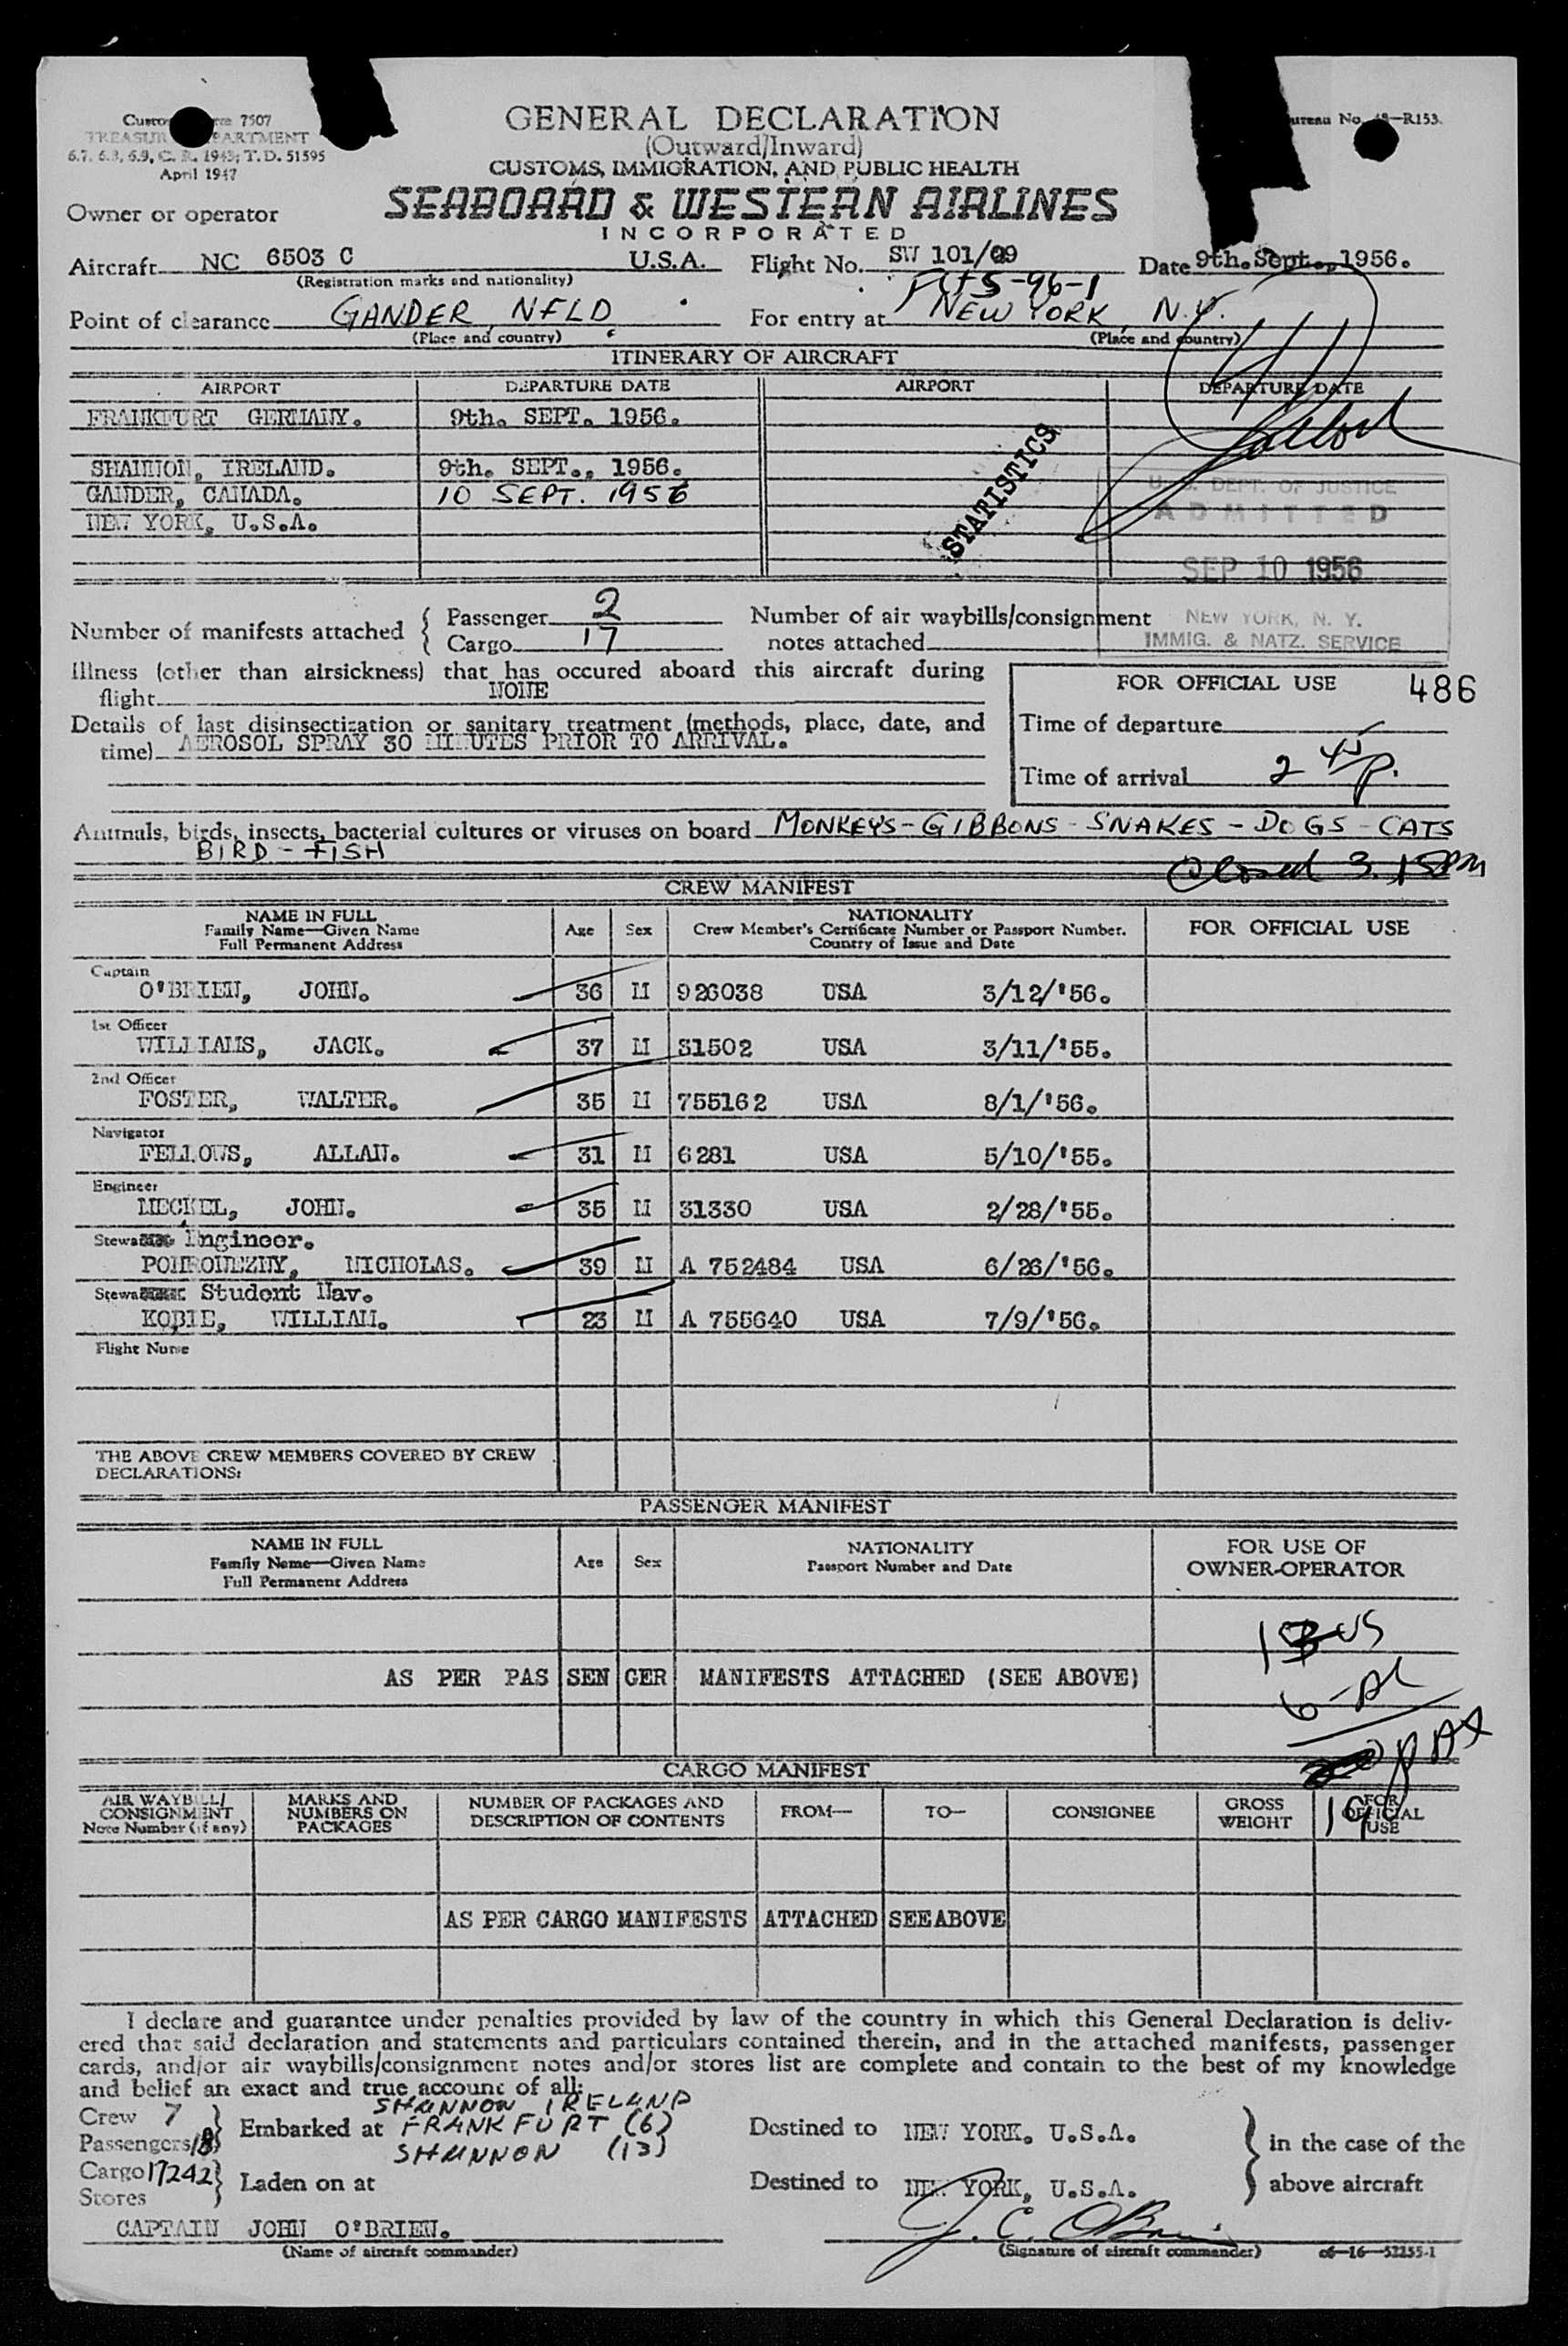 Customs Form 7507
TREASURY DEPARTMENT
6.7, 6.8, 6.9, C. R. 1943; T.D. 51595
April 1947
GENERAL DECLARATION
(Outward/Inward)
CUSTOMS, IMMIGRATION, AND PUBLIC HEALTH
ureau No. R153.
Owner or operator
SEABOARD & WESTERN AIRLINES
INCORPORATED
Aircraft NC 6503 C U.S.A. Flight No. SW 101/09 Date 9th. Sept., 1956.
(Registration marks and nationality)
Point of clearance GANDER NFLD. For entry at NEW YORK, N.Y.
(Place and country) (Place and country)
ITINERARY OF AIRCRAFT
AIRPORT DEPARTURE DATE AIRPORT DEPARTURE DATE
FRANKFURT GERMANY. 9th. SEPT. 1956.
SHANNON, IRELAND. 9th. SEPT., 1956.
GANDER, CANADA. 10 SEPT. 1956
NEW YORK, U.S.A.
STATISTICS
U. S. DEPT. OF JUSTICE
ADMITTED
SEP 10 1956
NEW YORK, N. Y.
IMMIG. & NATZ. SERVICE
Number of manifests attached { Passenger 2
Cargo 17
Number of air waybills/consignment
notes attached
Illness (other than airsickness) that has occured aboard this aircraft during
flight NONE
Details of last disinsectization or sanitary treatment (methods, place, date, and
time) AEROSOL SPRAY 30 MINUTES PRIOR TO ARRIVAL.
FOR OFFICIAL USE 486
Time of departure
Time of arrival 2 45 p.
Animals, birds, insects, bacterial cultures or viruses on board MONKEYS - GIBBONS - SNAKES - DOGS - CATS
BIRD - FISH
Closed 3.15pm
CREW MANIFEST
NAME IN FULL
Family Name—Given Name
Full Permanent Address
Age Sex
NATIONALITY
Crew Member's Certificate Number or Passport Number.
Country of Issue and Date
FOR OFFICIAL USE
Captain
O'BRIEN, JOHN. 36 M 926038 USA 3/12/'56.
1st Officer
WILLIAMS, JACK. 37 M 31502 USA 3/11/'55.
2nd Officer
FOSTER, WALTER. 35 M 755162 USA 8/1/'56.
Navigator
FELLOWS, ALLAN. 31 M 6281 USA 5/10/'55.
Engineer
MECKEL, JOHN. 35 M 31330 USA 2/28/'55.
Stewa Engineer.
POHROWEZNY, NICHOLAS. 39 M A 752484 USA 6/26/'56.
Stewa Student Nav.
KOBIE, WILLIAM. 23 M A 755640 USA 7/9/'56.
Flight Nurse
THE ABOVE CREW MEMBERS COVERED BY CREW
DECLARATIONS:
PASSENGER MANIFEST
NAME IN FULL
Family Name—Given Name
Full Permanent Address
Age Sex
NATIONALITY
Passport Number and Date
FOR USE OF
OWNER-OPERATOR
AS PER PAS SEN GER MANIFESTS ATTACHED (SEE ABOVE)
13 US
6 - AL
19 PAX
CARGO MANIFEST
AIR WAYBILL/
CONSIGNMENT
Note Number (if any)
MARKS AND
NUMBERS ON
PACKAGES
NUMBER OF PACKAGES AND
DESCRIPTION OF CONTENTS
FROM— TO— CONSIGNEE
GROSS
WEIGHT
FOR
OFFICIAL
USE
AS PER CARGO MANIFESTS ATTACHED SEE ABOVE
I declare and guarantee under penalties provided by law of the country in which this General Declaration is deliv-
ered that said declaration and statements and particulars contained therein, and in the attached manifests, passenger
cards, and/or air waybills/consignment notes and/or stores list are complete and contain to the best of my knowledge
and belief an exact and true account of all:
SHANNON IRELAND
Crew 7
Passengers
Embarked at FRANKFURT (6)
SHANNON (13)
Destined to NEW YORK. U.S.A.
in the case of the
Cargo 17242
Stores
Laden on at
Destined to NEW YORK, U.S.A.
above aircraft
CAPTAIN JOHN O'BRIEN.
(Name of aircraft commander)
J. C. O'Brien
(Signature of aircraft commander) c6—16—52255-1